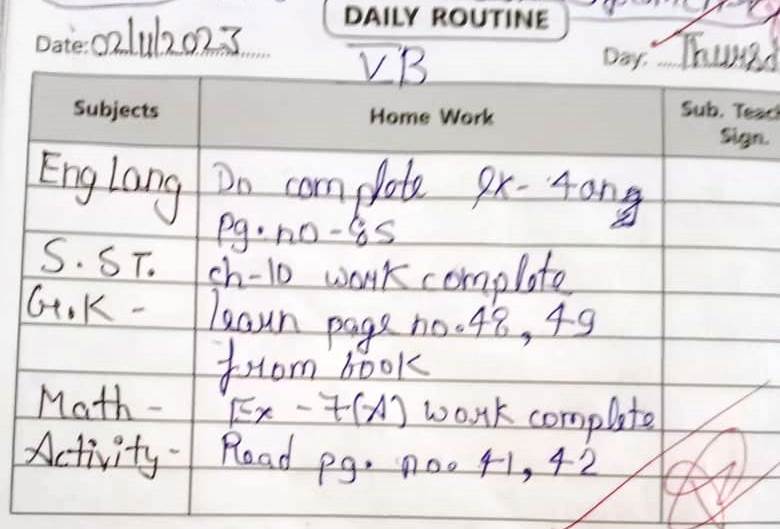 DAILY ROUTINE
Date: 02/11/2023 Day: Thursd
VB
Subjects Home Work Sub. Teac
Sign.
Eng Lang Do complete ex- 4 on
pg. no - 85
S. ST. ch-10 work complete
G.K - learn page no. 48, 49
from book
Math - Ex - 7(A) work complete
Activity - Read pg. no. 41, 42